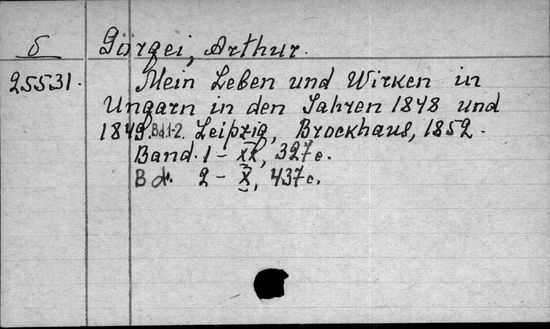 б Görgei, Arthur.
25531. Mein Leben und Wirken in
Ungarn in den Jahren 1848 und
1849. Bd.1-2. Leipzig, Brockhaus, 1852.
Band. 1 - XX, 327 c.
Bd. 2 - X, 437 c.